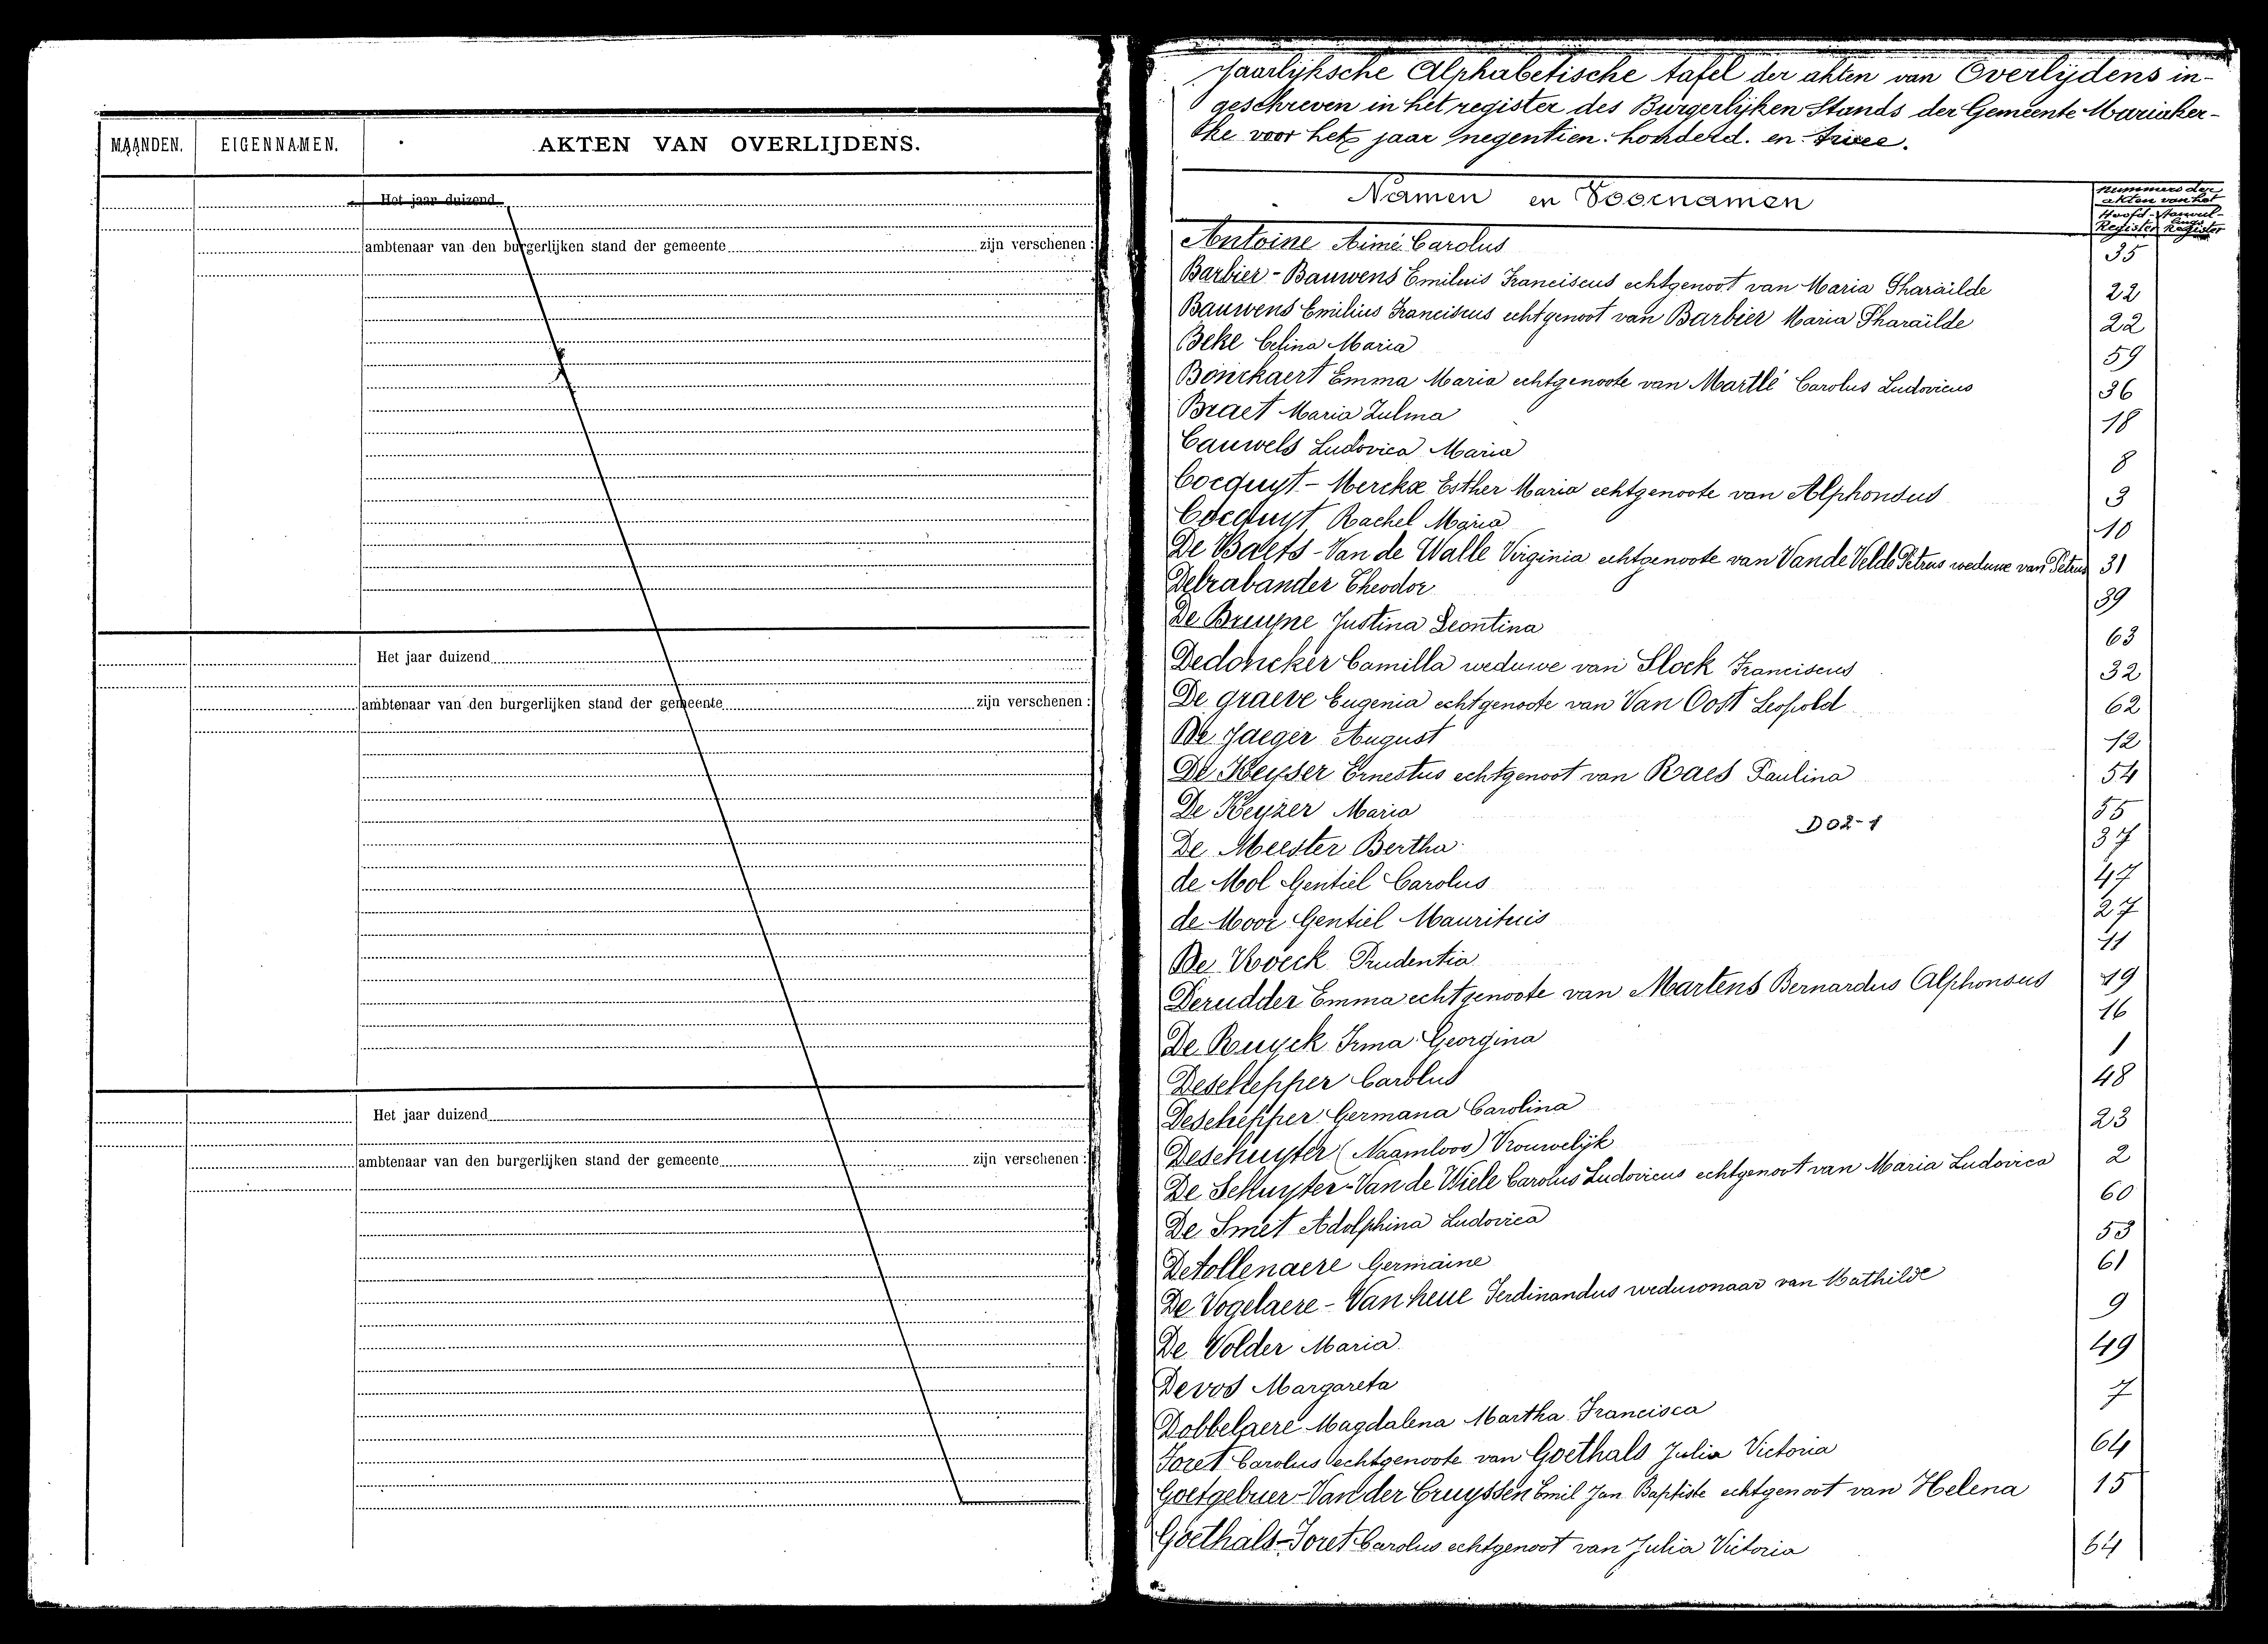 MAANDEN. EIGENNAMEN. AKTEN VAN OVERLIJDENS.
Het jaar duizend
ambtenaar van den burgerlijken stand der gemeente zijn verschenen :
Het jaar duizend
ambtenaar van den burgerlijken stand der gemeente zijn verschenen :
Het jaar duizend
ambtenaar van den burgerlijken stand der gemeente zijn verschenen :
Jaarlijksche Alphabetische tafel der akten van Overlijdens in-
geschreven in het register des Burgerlijken Stands der Gemeente Mariaker-
ke voor het jaar negentien honderd en twee.
Namen en Voornamen
nummers der
akten van het
Hoofd-
Register Register
Antoine Aimé Carolus 35
Barbier - Bauwens Emilius Franciscus echtgenoot van Maria Pharaïlde 22
Bauwens Emilius Franciscus echtgenoot van Barbier Maria Pharaïlde 22
Beke Celina Maria 59
Bonckaert Emma Maria echtgenoote van Martlé Carolus Ludovicus 36
Braet Maria Zulma 18
Cauwels Ludovica Maria 8
Cocquyt - Merckx Esther Maria echtgenoote van Alphonsus 3
Cocquyt Rachel Maria 10
De Baets - Van de Walle Virginia echtgenoote van Van de Velde Petrus weduwe van Petrus 31
Debrabander Theodor 39
De Bruyne Justina Leontina 63
Dedoncker Camilla weduwe van Slock Franciscus 32
De graeve Eugenia echtgenoote van Van Oost Leopold 62
De Jaeger August 12
De Keyser Ernestus echtgenoot van Raes Paulina 54
De Keyzer Maria 55
D02-1
De Meester Bertha 37
de Mol Gentiel Carolus 47
de Moor Gentiel Mauritius 27
De Roeck Prudentia 11
Derudder Emma echtgenoote van Martens Bernardus Alphonsus 19
De Ruyck Irma Georgina 16
Deschepper Carolus 1
Deschepper Germana Carolina 48
Deschuyter (Naamloos) Vrouwelijk 23
De Schuyter - Van de Wiele Carolus Ludovicus echtgenoot van Maria Ludovica 2
De Smet Adolphina Ludovica 60
Detollenaere Germaine 53
De Vogelaere - Van heue Ferdinandus weduwnaar van Mathilde 61
De Volder Maria 9
Devos Margareta 49
Dobbelaere Magdalena Martha Francisca 7
Foret Carolus echtgenoote van Goethals Julia Victoria 64
Goetgebuer - Van der Cruyssen Emil Jan Baptiste echtgenoot van Helena 15
Goethals - Foret Carolus echtgenoot van Julia Victoria 64